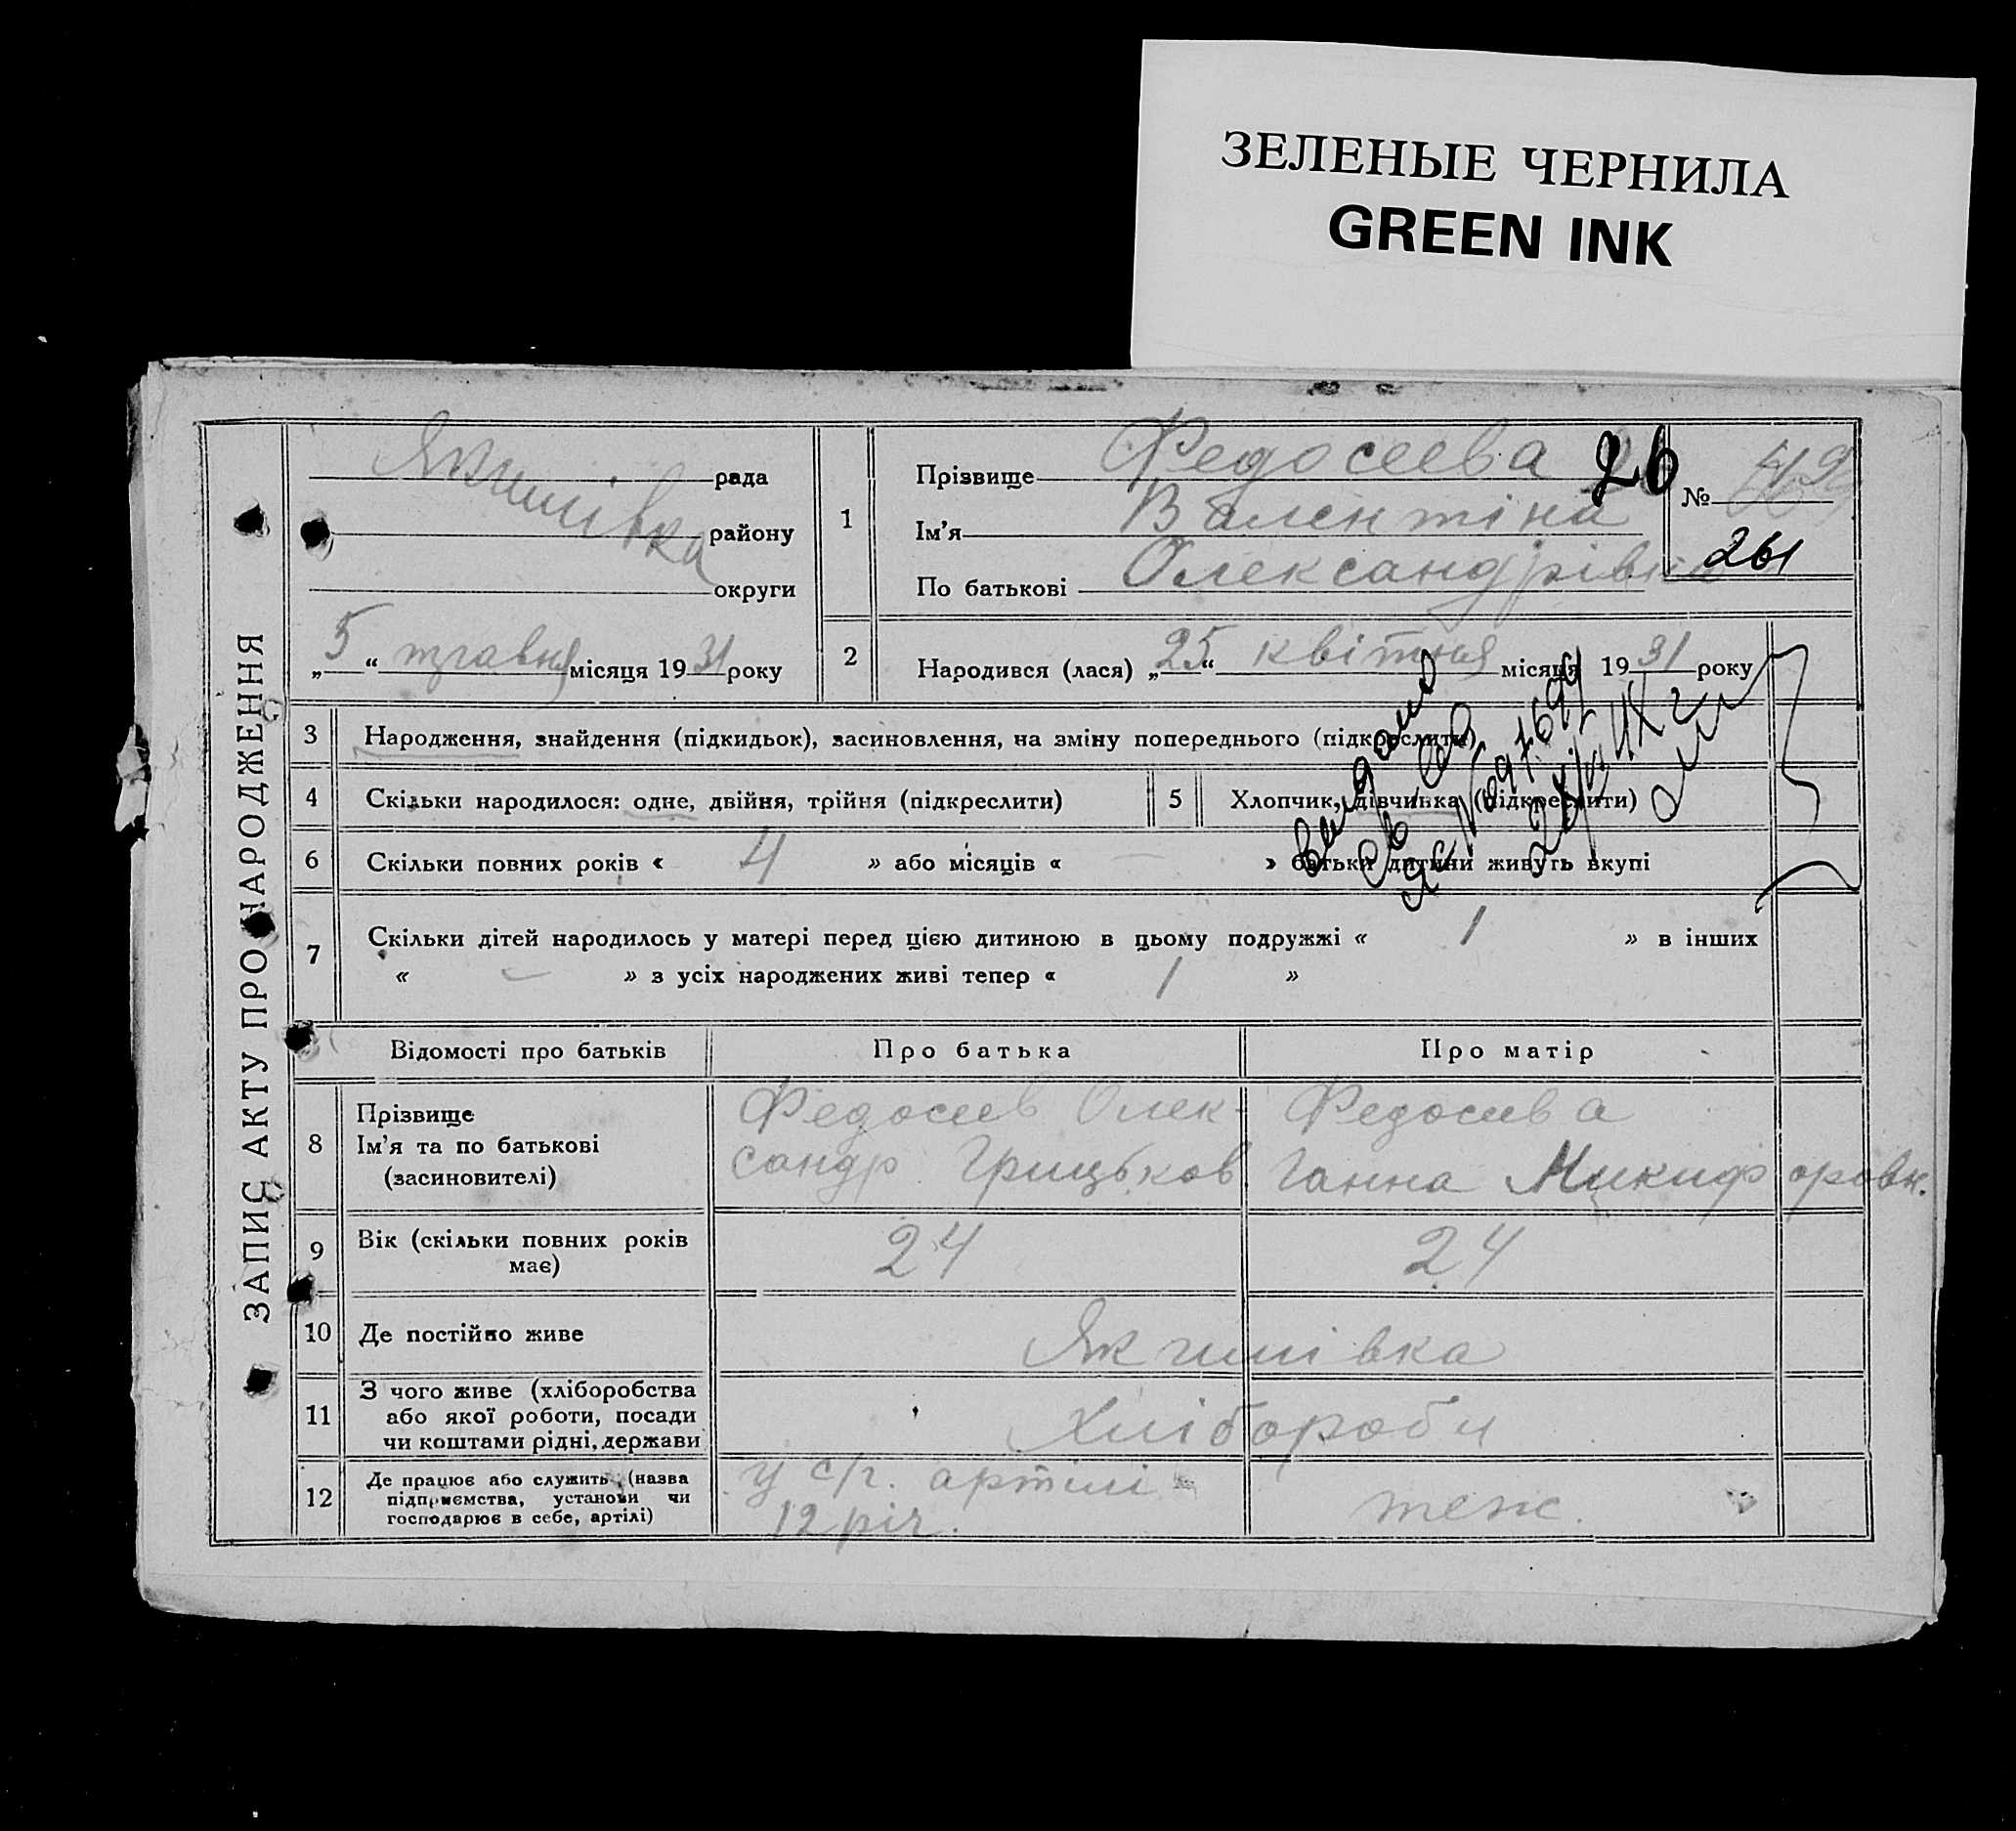 ЗЕЛЕНЫЕ ЧЕРНИЛА
GREEN INK
ЗАПИС АКТУ ПРО НАРОДЖЕННЯ
Якимівка
рада
району
округи
„5“ травня місяця 1931 року
1
Прізвище Федосеева 26
Ім’я Валентіна
По батькові Олександрівна
№ 49
261
2
Народився (лася) „25“ квітня місяця 1931 року
3 Народження, знайдення (підкидьок), засиновлення, на зміну попереднього (підкреслити)
4 Скільки народилося: одне, двійня, трійня (підкреслити)
5 Хлопчик, дівчинка (підкреслити)
Видано
6 Скільки повних років « 4 » або місяців « — » батьки дитини живуть вкупі
7 Скільки дітей народилось у матері перед цією дитиною в цьому подружжі « 1 » в інших
« — » з усіх народжених живі тепер « 1 »
Відомості про батьків Про батька Про матір
8 Прізвище
Ім’я та по батькові
(засиновителі)
Федосеев Олек-
сандр Грицьков
Федосеева
Ганна Микифоровн.
9 Вік (скільки повних років
має)
24 24
10 Де постійно живе Якимівка
11 З чого живе (хліборобства
або якої роботи, посади
чи коштами рідні, держави
Хлібороби
12 Де працює або служить (назва
підприємства, установи чи
господарює в себе, артілі)
у с/г. артілі
12 річ.
теж.